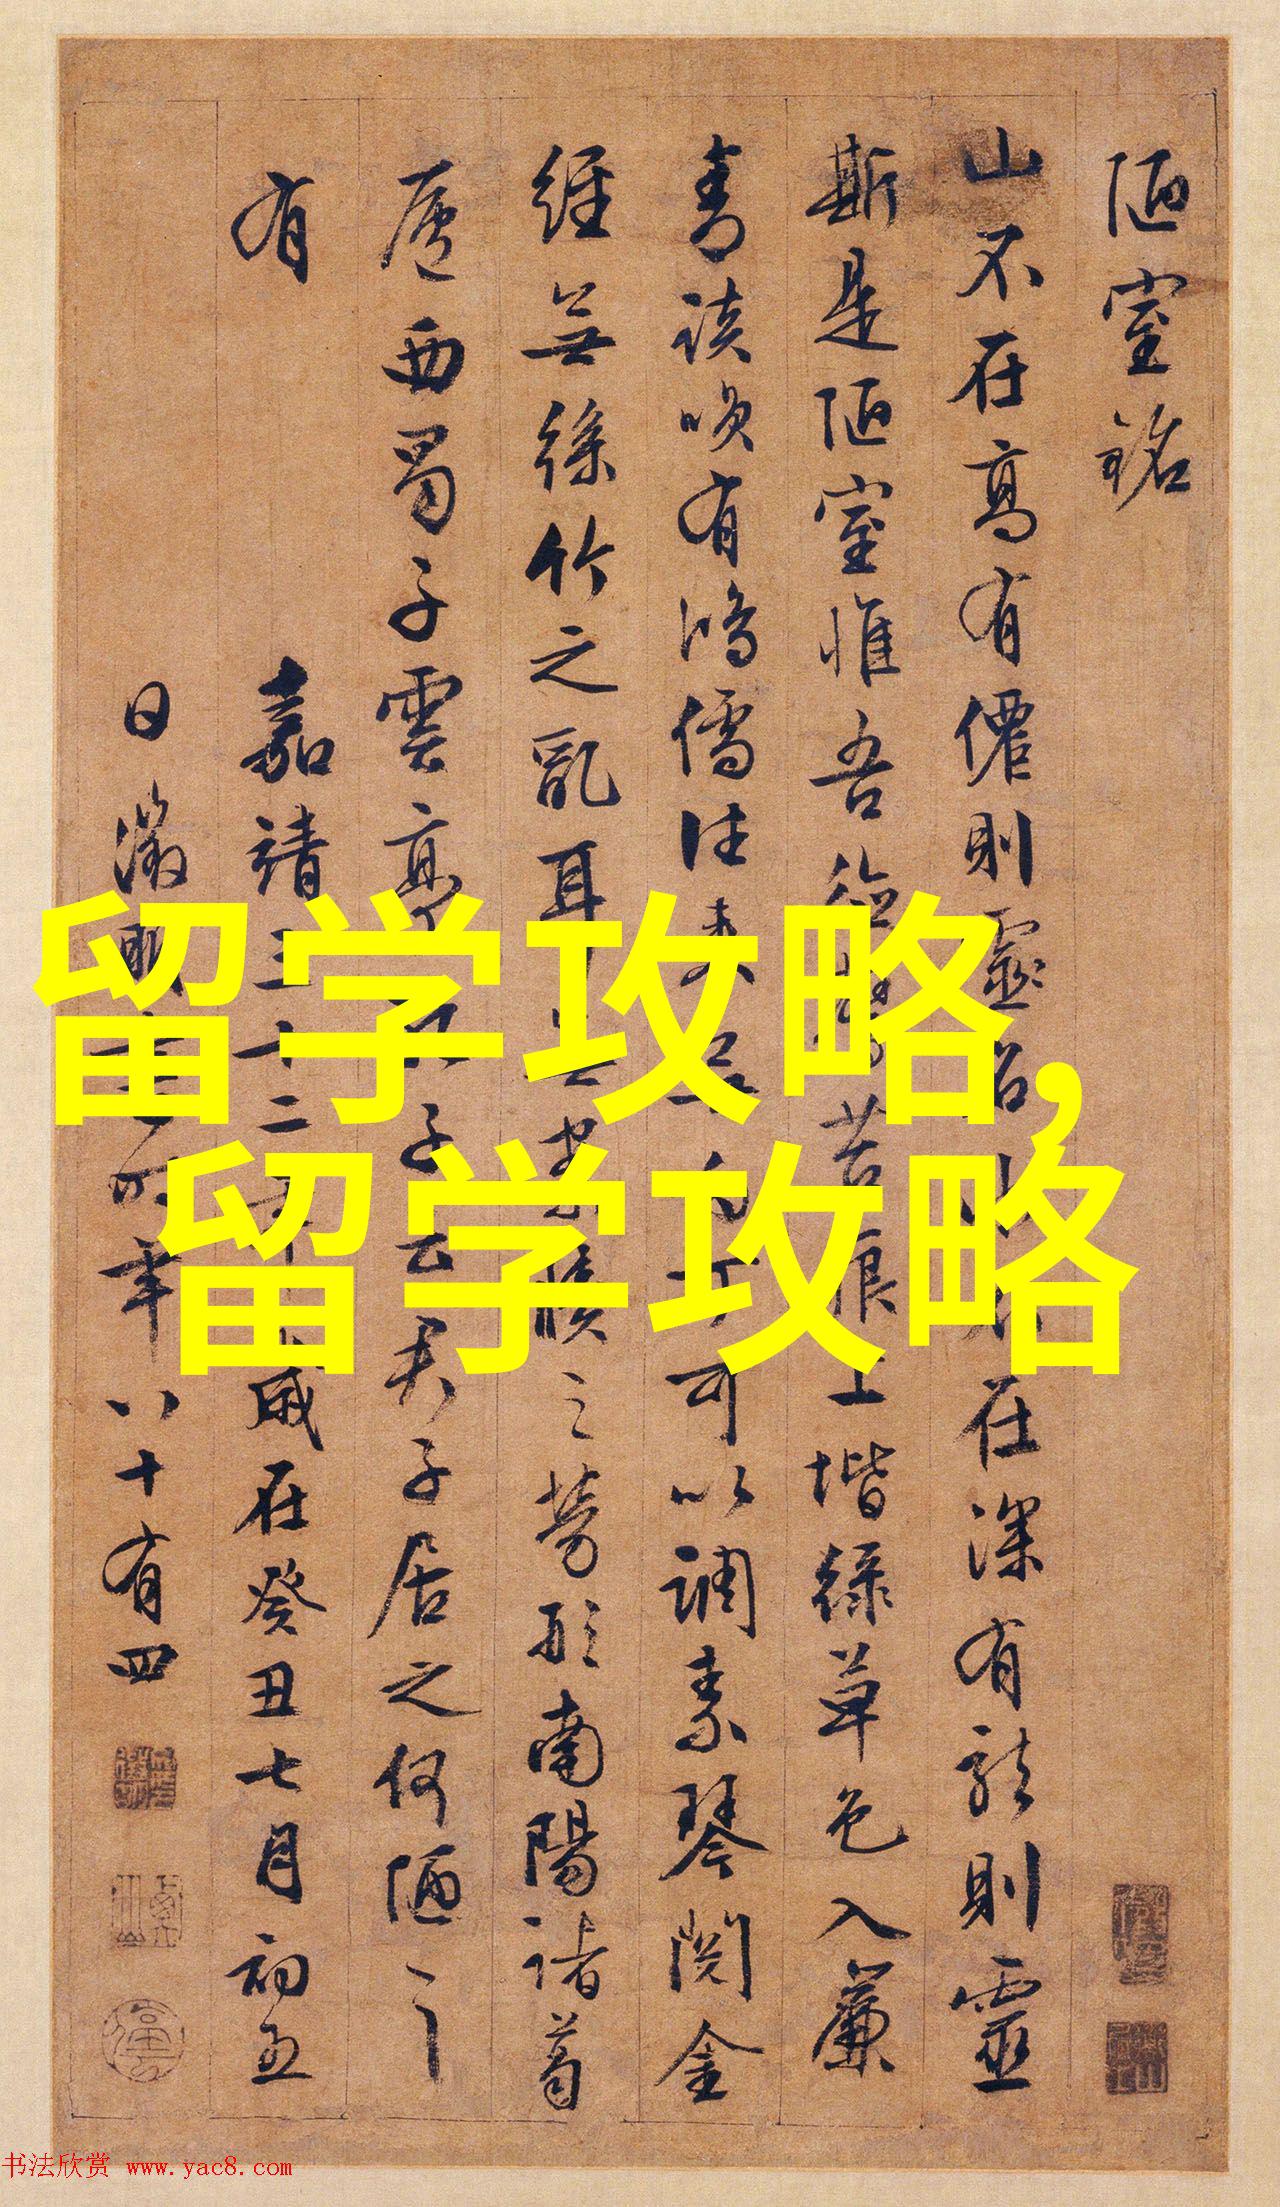 陋室銘
山不在高有僊則靈水不在深有龍則靈
斯是陋室惟吾德馨苔痕上堦緑草色入簾
青談咲有鴻儒往来無白丁可以調素琴閱金
經無絲竹之亂耳無案牘之勞形南陽諸葛
廬西蜀子雲亭孔子云君子居之何陋之
有
嘉靖三十二年歲在癸丑七月初五
日徵明書時年八十有四
留学攻略,
留学攻略
书法欣赏 www.yac8.com